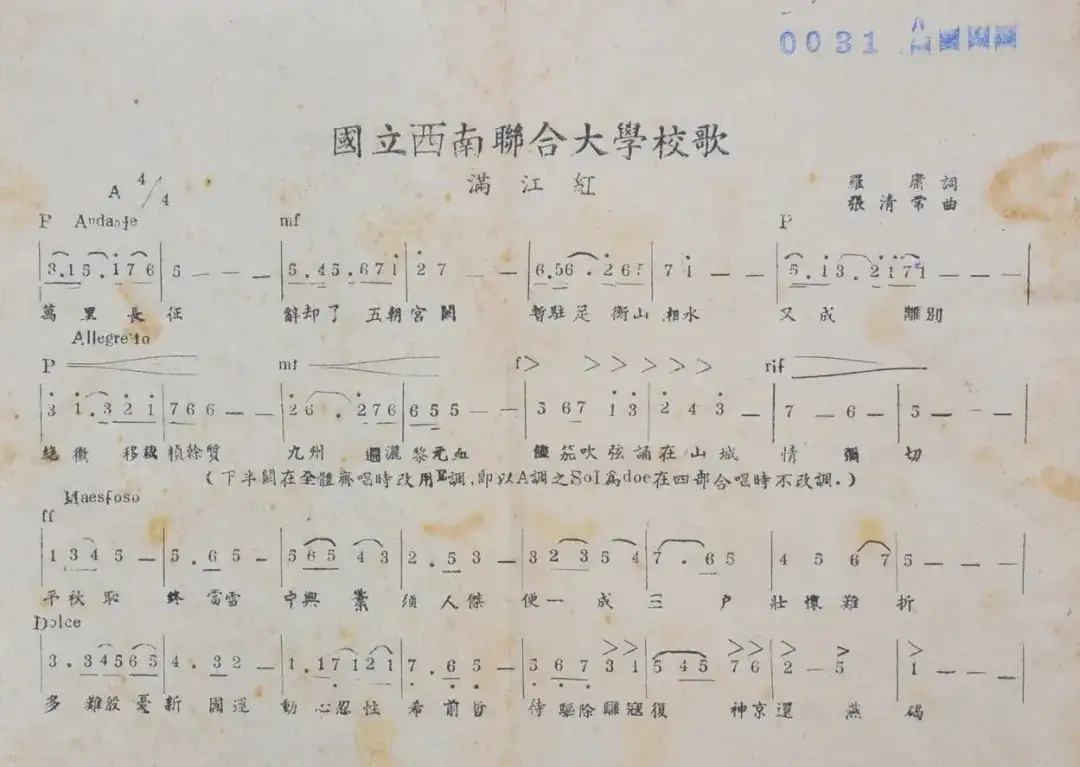 0031
國立西南聯合大學校歌
滿江紅
A 4/4
羅庸詞
張清常曲
P Andante mf P
3.15.176 | 5 — — — | 5.45.671 | 27 | 6.56.265 | 71 — — | 5.13.2171 — — —
萬里長征 辭却了五朝宮闕 暫駐足衡山湘水 又成離別
Allegretto
P mf f> > > > > > rif
31.321 | 766 — — | 26.276 | 655 — — | 56713 | 243 — | 7 — 6 — | 5 — — —
絶徼移栽楨榦質 九州遍灑黎元血 儘笳吹弦誦在山城 情彌切
(下半闋在全體齊唱時改用E調,即以A調之Sol爲doe在四部合唱時不改調.)
Maestoso
ff
1345 — | 5.65 — | 56543 | 2.53 — | 32354 | 7.65 | 4567 | 5 — — —
千秋耻 終當雪 中興業 須人傑 便一成三戶 壯懷難折
Dolce
3.34565 | 4.32 — | 1.17121 | 7.65 — | 56731 | 54576 | 2 — 5 | 1 — — —
多難殷憂新國運 動心忍性希前哲 待驅除讎寇復神京 還燕碣